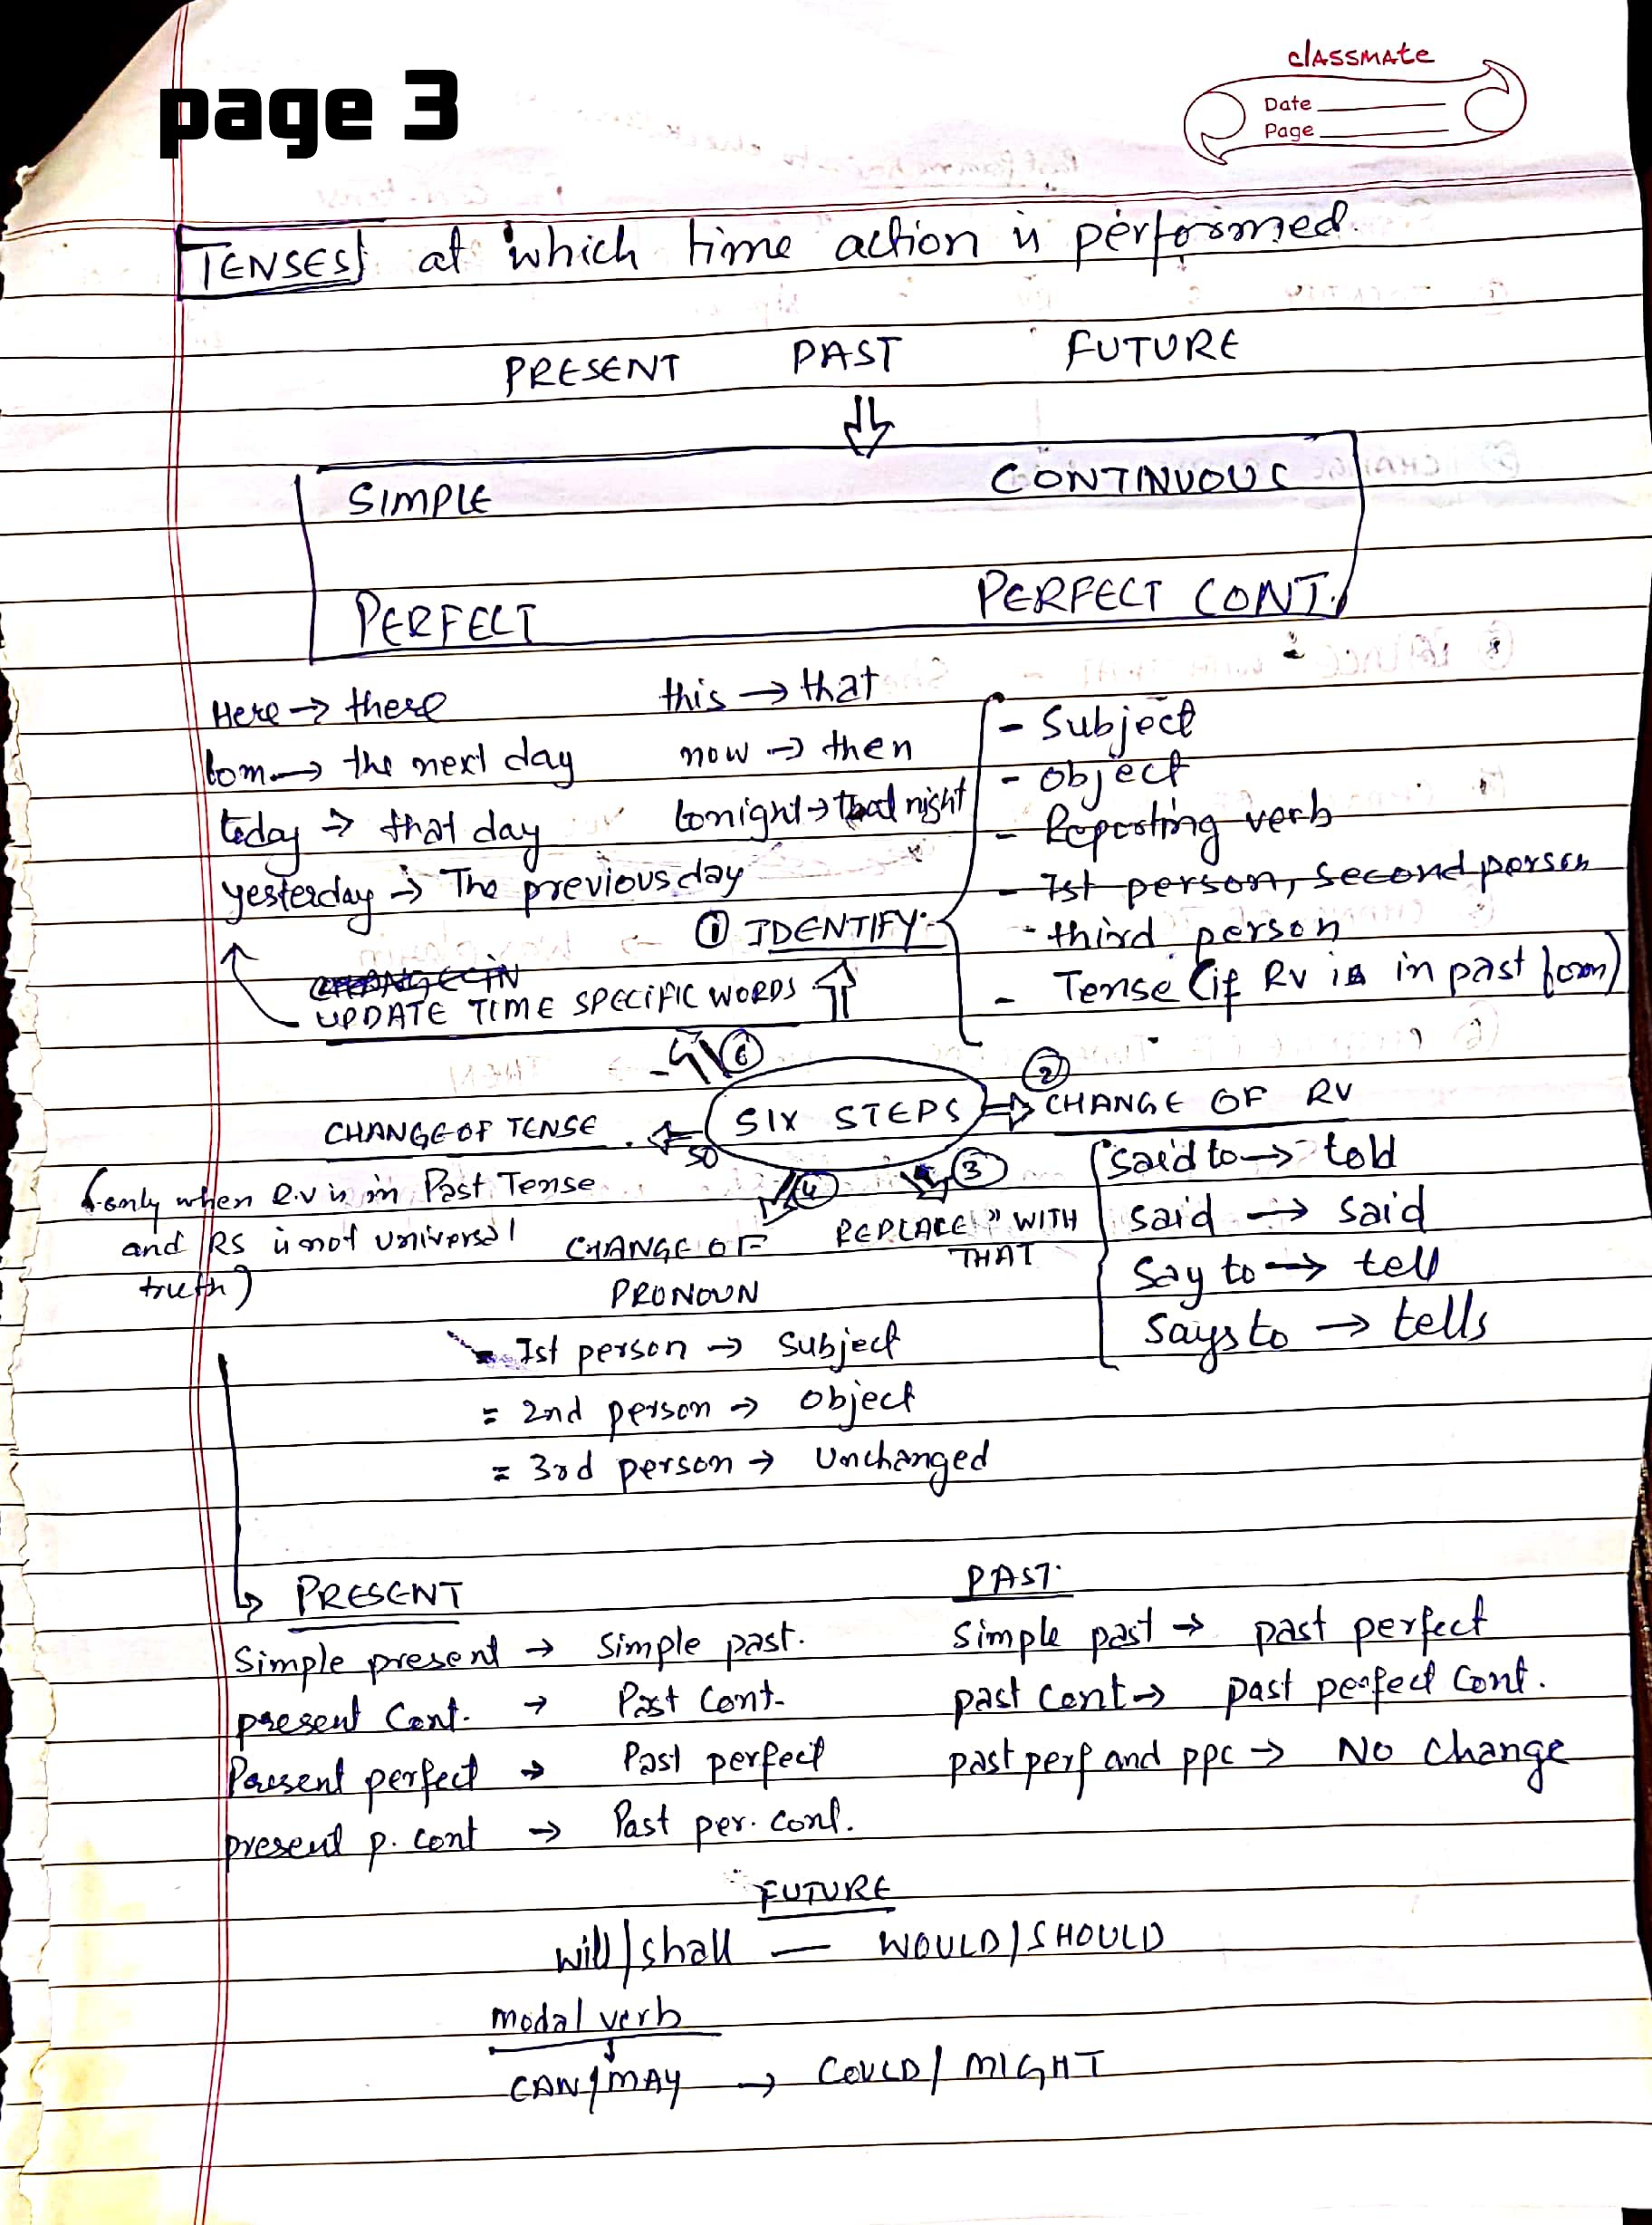 page 3
classmate
Date
Page
TENSES at which time action is performed.
PRESENT PAST FUTURE
SIMPLE CONTINUOUS
PERFECT PERFECT CONT.
Here → there this → that
tom. → the next day now → then
today → that day tonight → that night
yesterday → The previous day
① IDENTIFY:
- Subject
- object
- Reporting verb
- Ist person, second person
- third person
- Tense (if RV is in past form)
UPDATE TIME SPECIFIC WORDS
⑥
SIX STEPS
② CHANGE OF RV
said to → told
said → said
Say to → tell
Says to → tells
③
REPLACE " WITH
THAT
④
CHANGE OF
PRONOUN
- Ist person → Subject
= 2nd person → object
= 3rd person → Unchanged
CHANGE OF TENSE
(only when R.V is in Past Tense
and RS is not universal
truth)
PRESENT PAST.
Simple present → Simple past. Simple past → past perfect
present Cont. → Past Cont. past cont → past perfect Cont.
Present perfect → Past perfect past perf and ppc → No change
present p. cont → Past per. cont.
FUTURE
will/shall — WOULD/SHOULD
modal verb
CAN/MAY → COULD/MIGHT